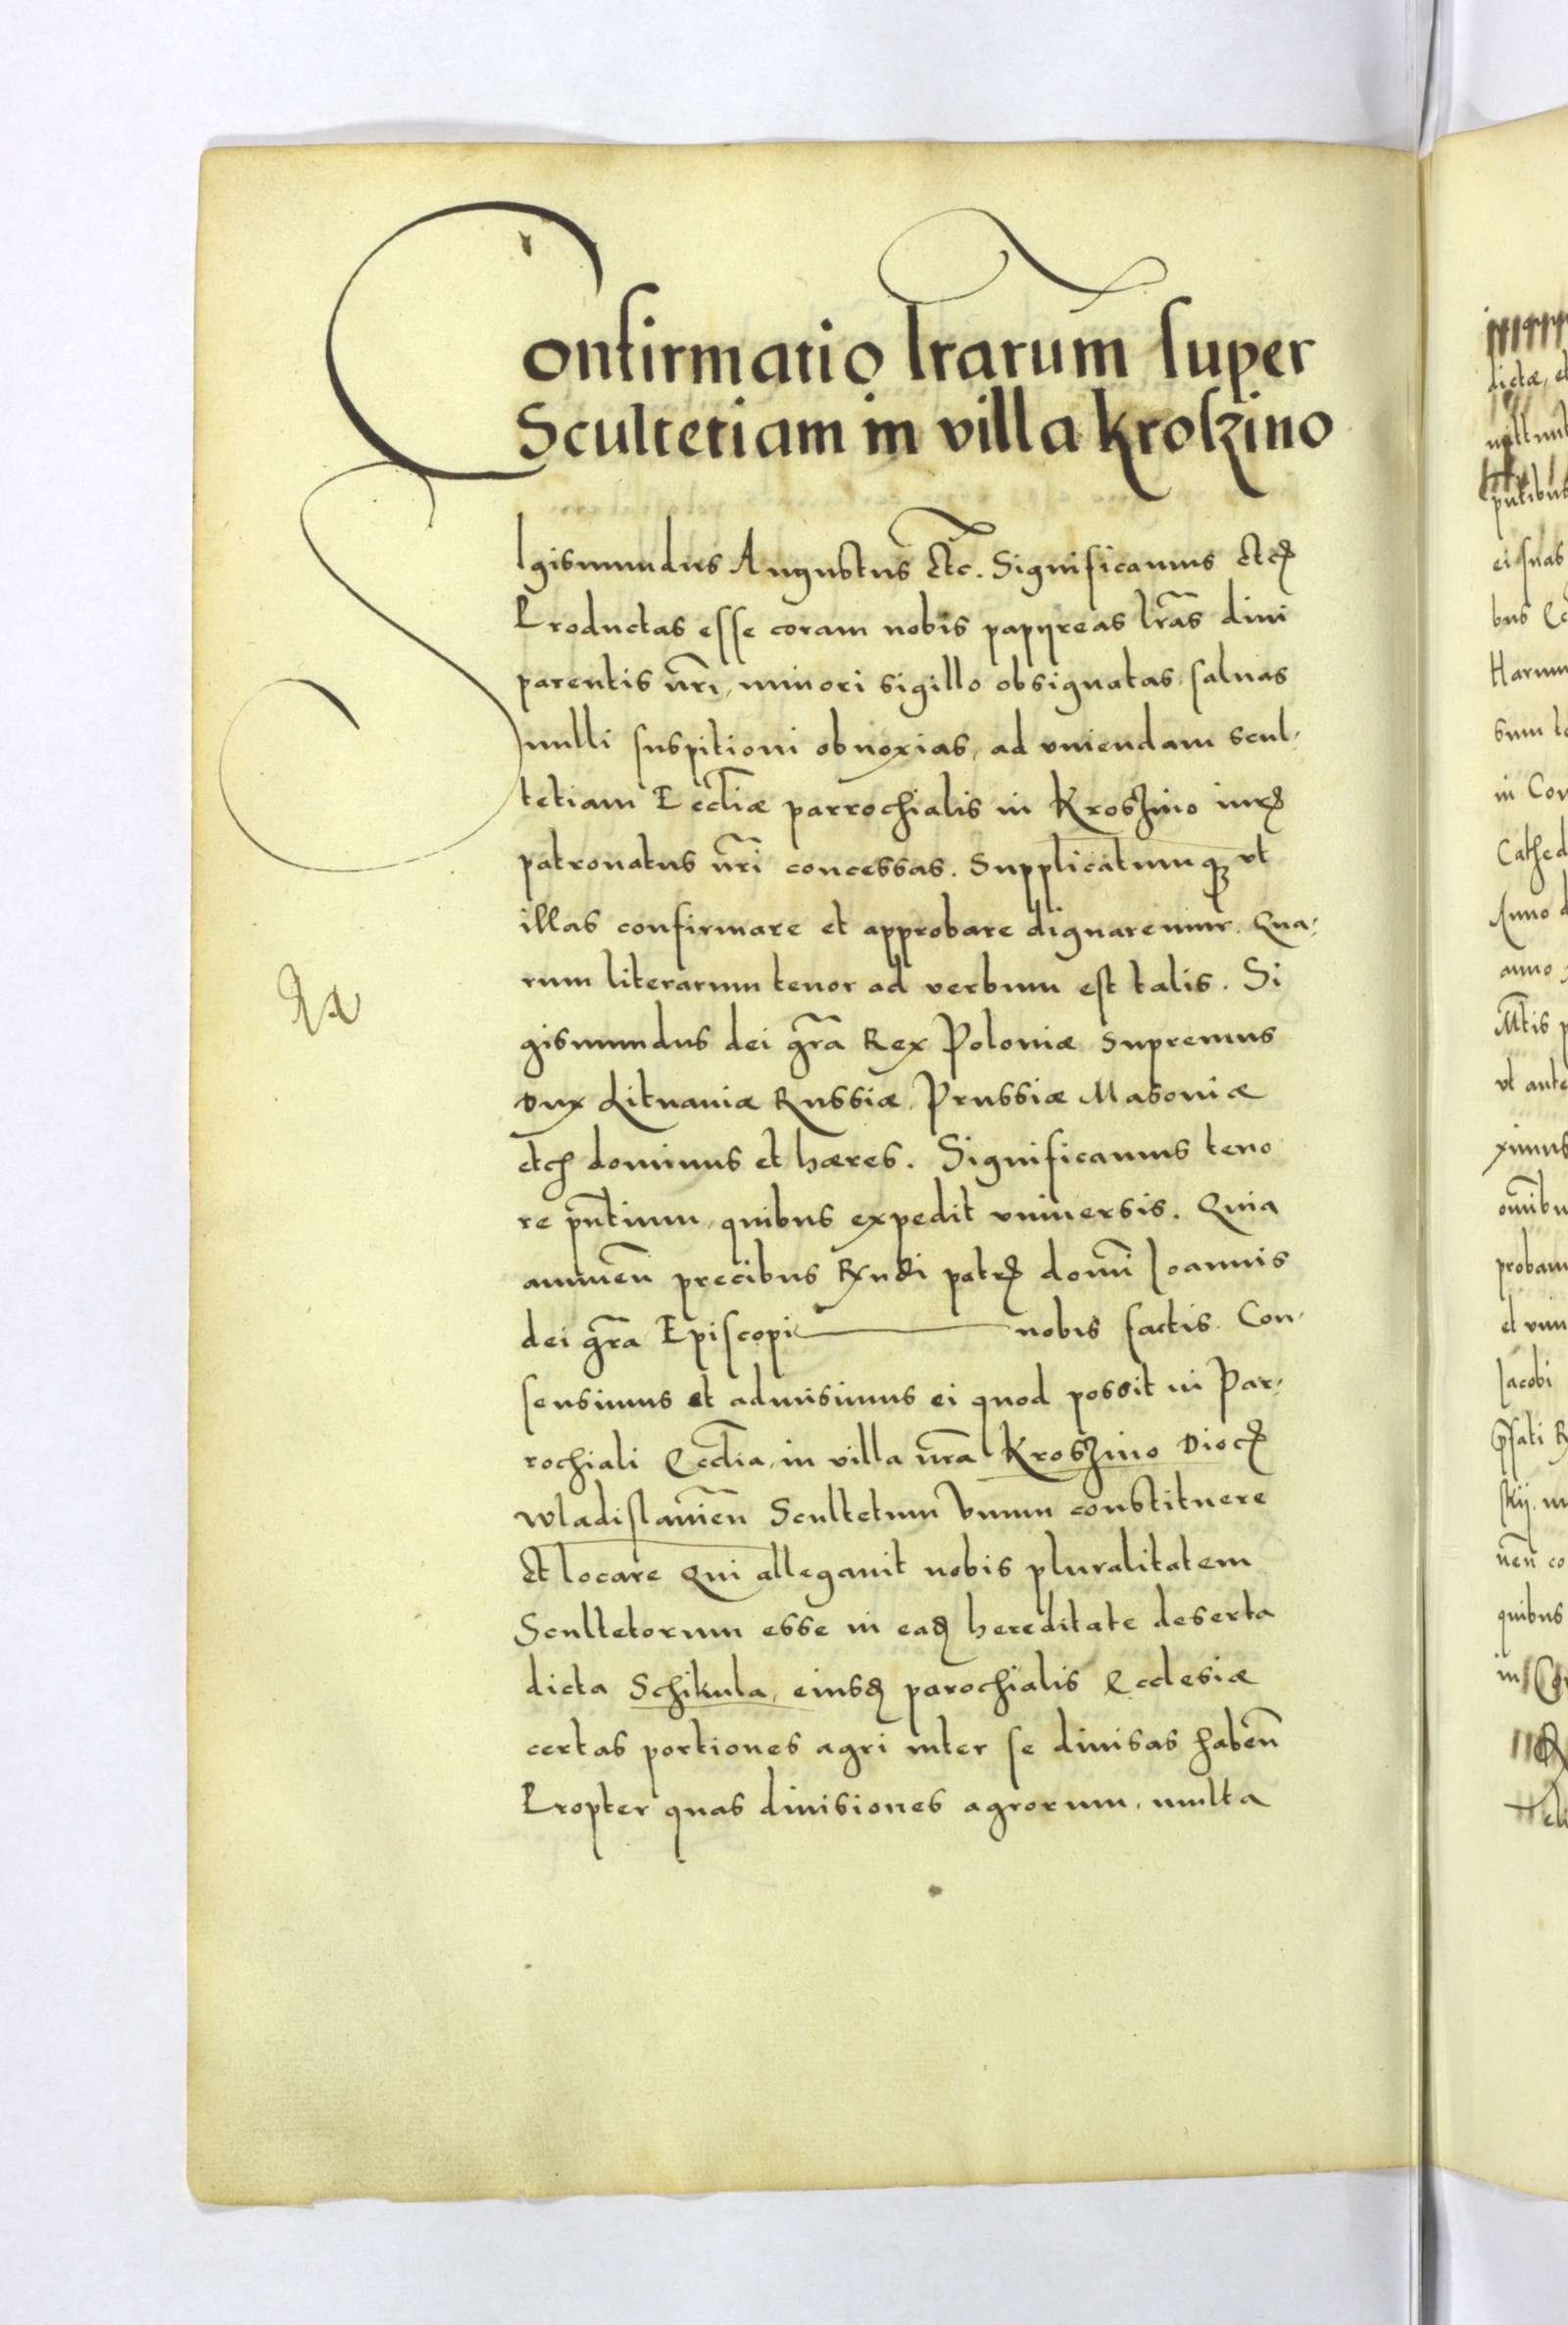 Confirmatio lrarum super
Scultetiam in villa Kroszino
Sigismundus Augustus Etc. Significamus Etc
Productas esse coram nobis papyreas lras diui
parentis nri, minori sigillo obsignatas, saluas
nulli suspitioni obnoxias, ad vniendam scul-
tetiam Eccliæ parrochialis in Kroszino iur
patronatus nri concessas. Supplicatumq vt
illas confirmare et approbare dignaremur. Qua-
rum literarum tenor ad verbum est talis. Si
gismundus dei gra Rex Poloniæ Supremus
Dux Lituaniæ Russiæ, Prussiæ Masoniæ
etc dominus et hæres. Significamus teno
re pntium, quibus expedit vniuersis. Quia
annuen precibus Rxndi patr domi Joannis
dei gra Episcopi nobis factis. Con-
sensimus et admisimus ei quod possit in Par-
rochiali Ecclia, in villa nra Kroszino Dioc
Wladislauien Scultetum vnum constituere
Et locare Qui allegauit nobis pluralitatem
Scultetorum esse in ead hereditate deserta
dicta Schikula, eiusd parochialis Ecclesiæ
certas portiones agri inter se diuisas haben
Propter quas diuisiones agrorum, multa